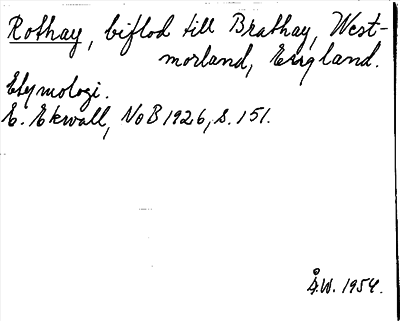 Rothay, biflod till Brathay, West-
morland, England.
Etymologi.
E. Ekwall, NoB 1926, s. 151.
Å.W. 1954.